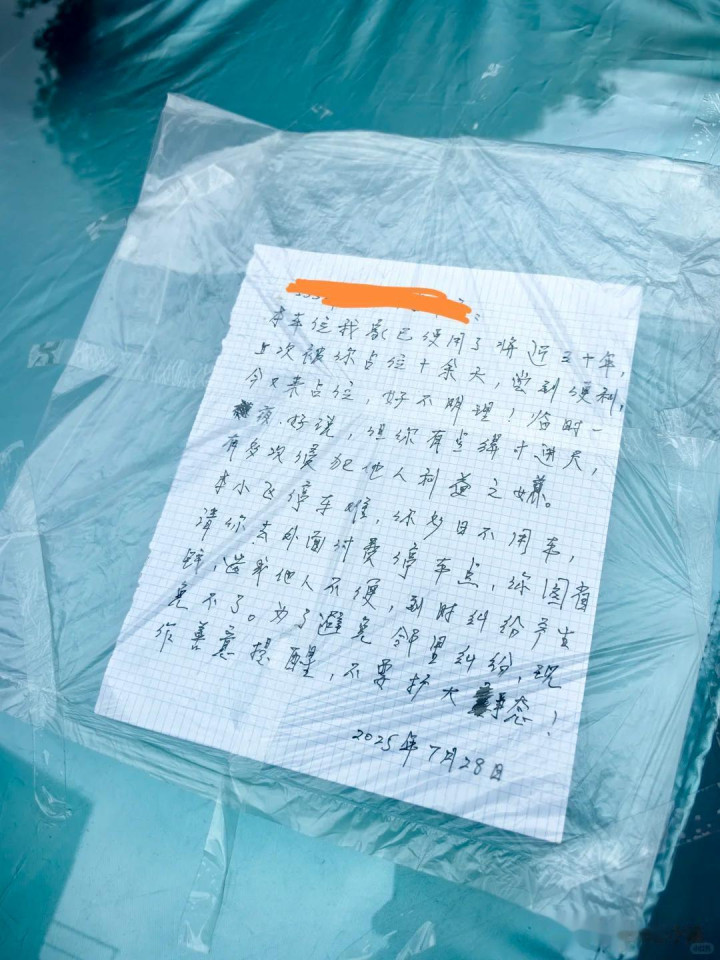 本车位我家已使用了将近三十年,
上次被你占位十余天,尝到便利,
今又来占位,好不明理!临时一
夜,好说,但你有点得寸进尺,
有多次侵犯他人利益之嫌。
本小区停车难,你多日不用车,
请你去外面付费停车点,你图省
钱,造成他人不便,到时纠纷产生
免不了。为了避免邻里纠纷,现
作善意提醒,不要扩大事态!
2025年7月28日